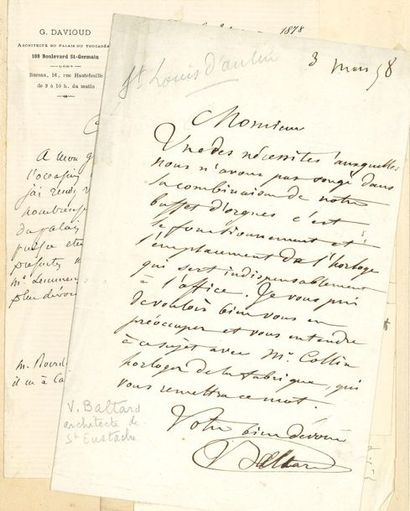 G. DAVIOUD
ARCHITECTE DU PALAIS DU TROCADÉRO
109 Boulevard St-Germain
Bureau, 16, rue Hautefeuille
de 9 à 10 h. du matin
1878
A mon
l'occasion
j'ai rendu
du palais
plus dévoué
St Louis d'antin
3 mars 58
Monsieur
Une des nécessités auxquelles
nous n'avons pas songé dans
la combinaison de notre
buffet d'orgues c'est
le fonctionnement et
l'emplacement de l'horloge
qui sert indispensablement
à l'office. Je vous prie
de vouloir bien vous en
préoccuper et vous entendre
à ce sujet avec Mr. Collin
horloger de la fabrique, qui
vous remettra ce mot.
Votre bien dévoué
V Baltard
V. Baltard
architecte de
St Eustache